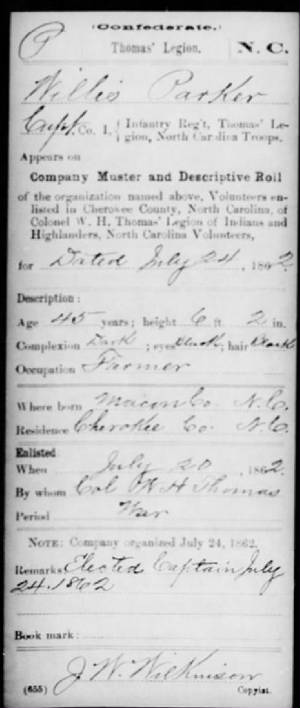 (Confederate.)
P Thomas' Legion. N. C.
Willis Parker
Capt, Co. I, { Infantry Reg't, Thomas' Legion, North Carolina Troops.
Appears on
Company Muster and Descriptive Roll
of the organization named above, Volunteers en-
listed in Cherokee County, North Carolina, of
Colonel W. H. Thomas' Legion of Indians and
Highlanders, North Carolina Volunteers,
for Dated July 24, 1862.
Description:
Age 45 years; height 6 ft. 2 in.
Complexion Dark; eyes Black, hair Black
Occupation Farmer
Where born Macon Co. N.C.
Residence Cherokee Co. N.C.
Enlisted
When July 20, 1862.
By whom Col W H Thomas
Period War
NOTE: Company organized July 24, 1862.
Remarks Elected Captain July
24. 1862
Book mark:
J. W. Wilkinson
(655) Copyist.